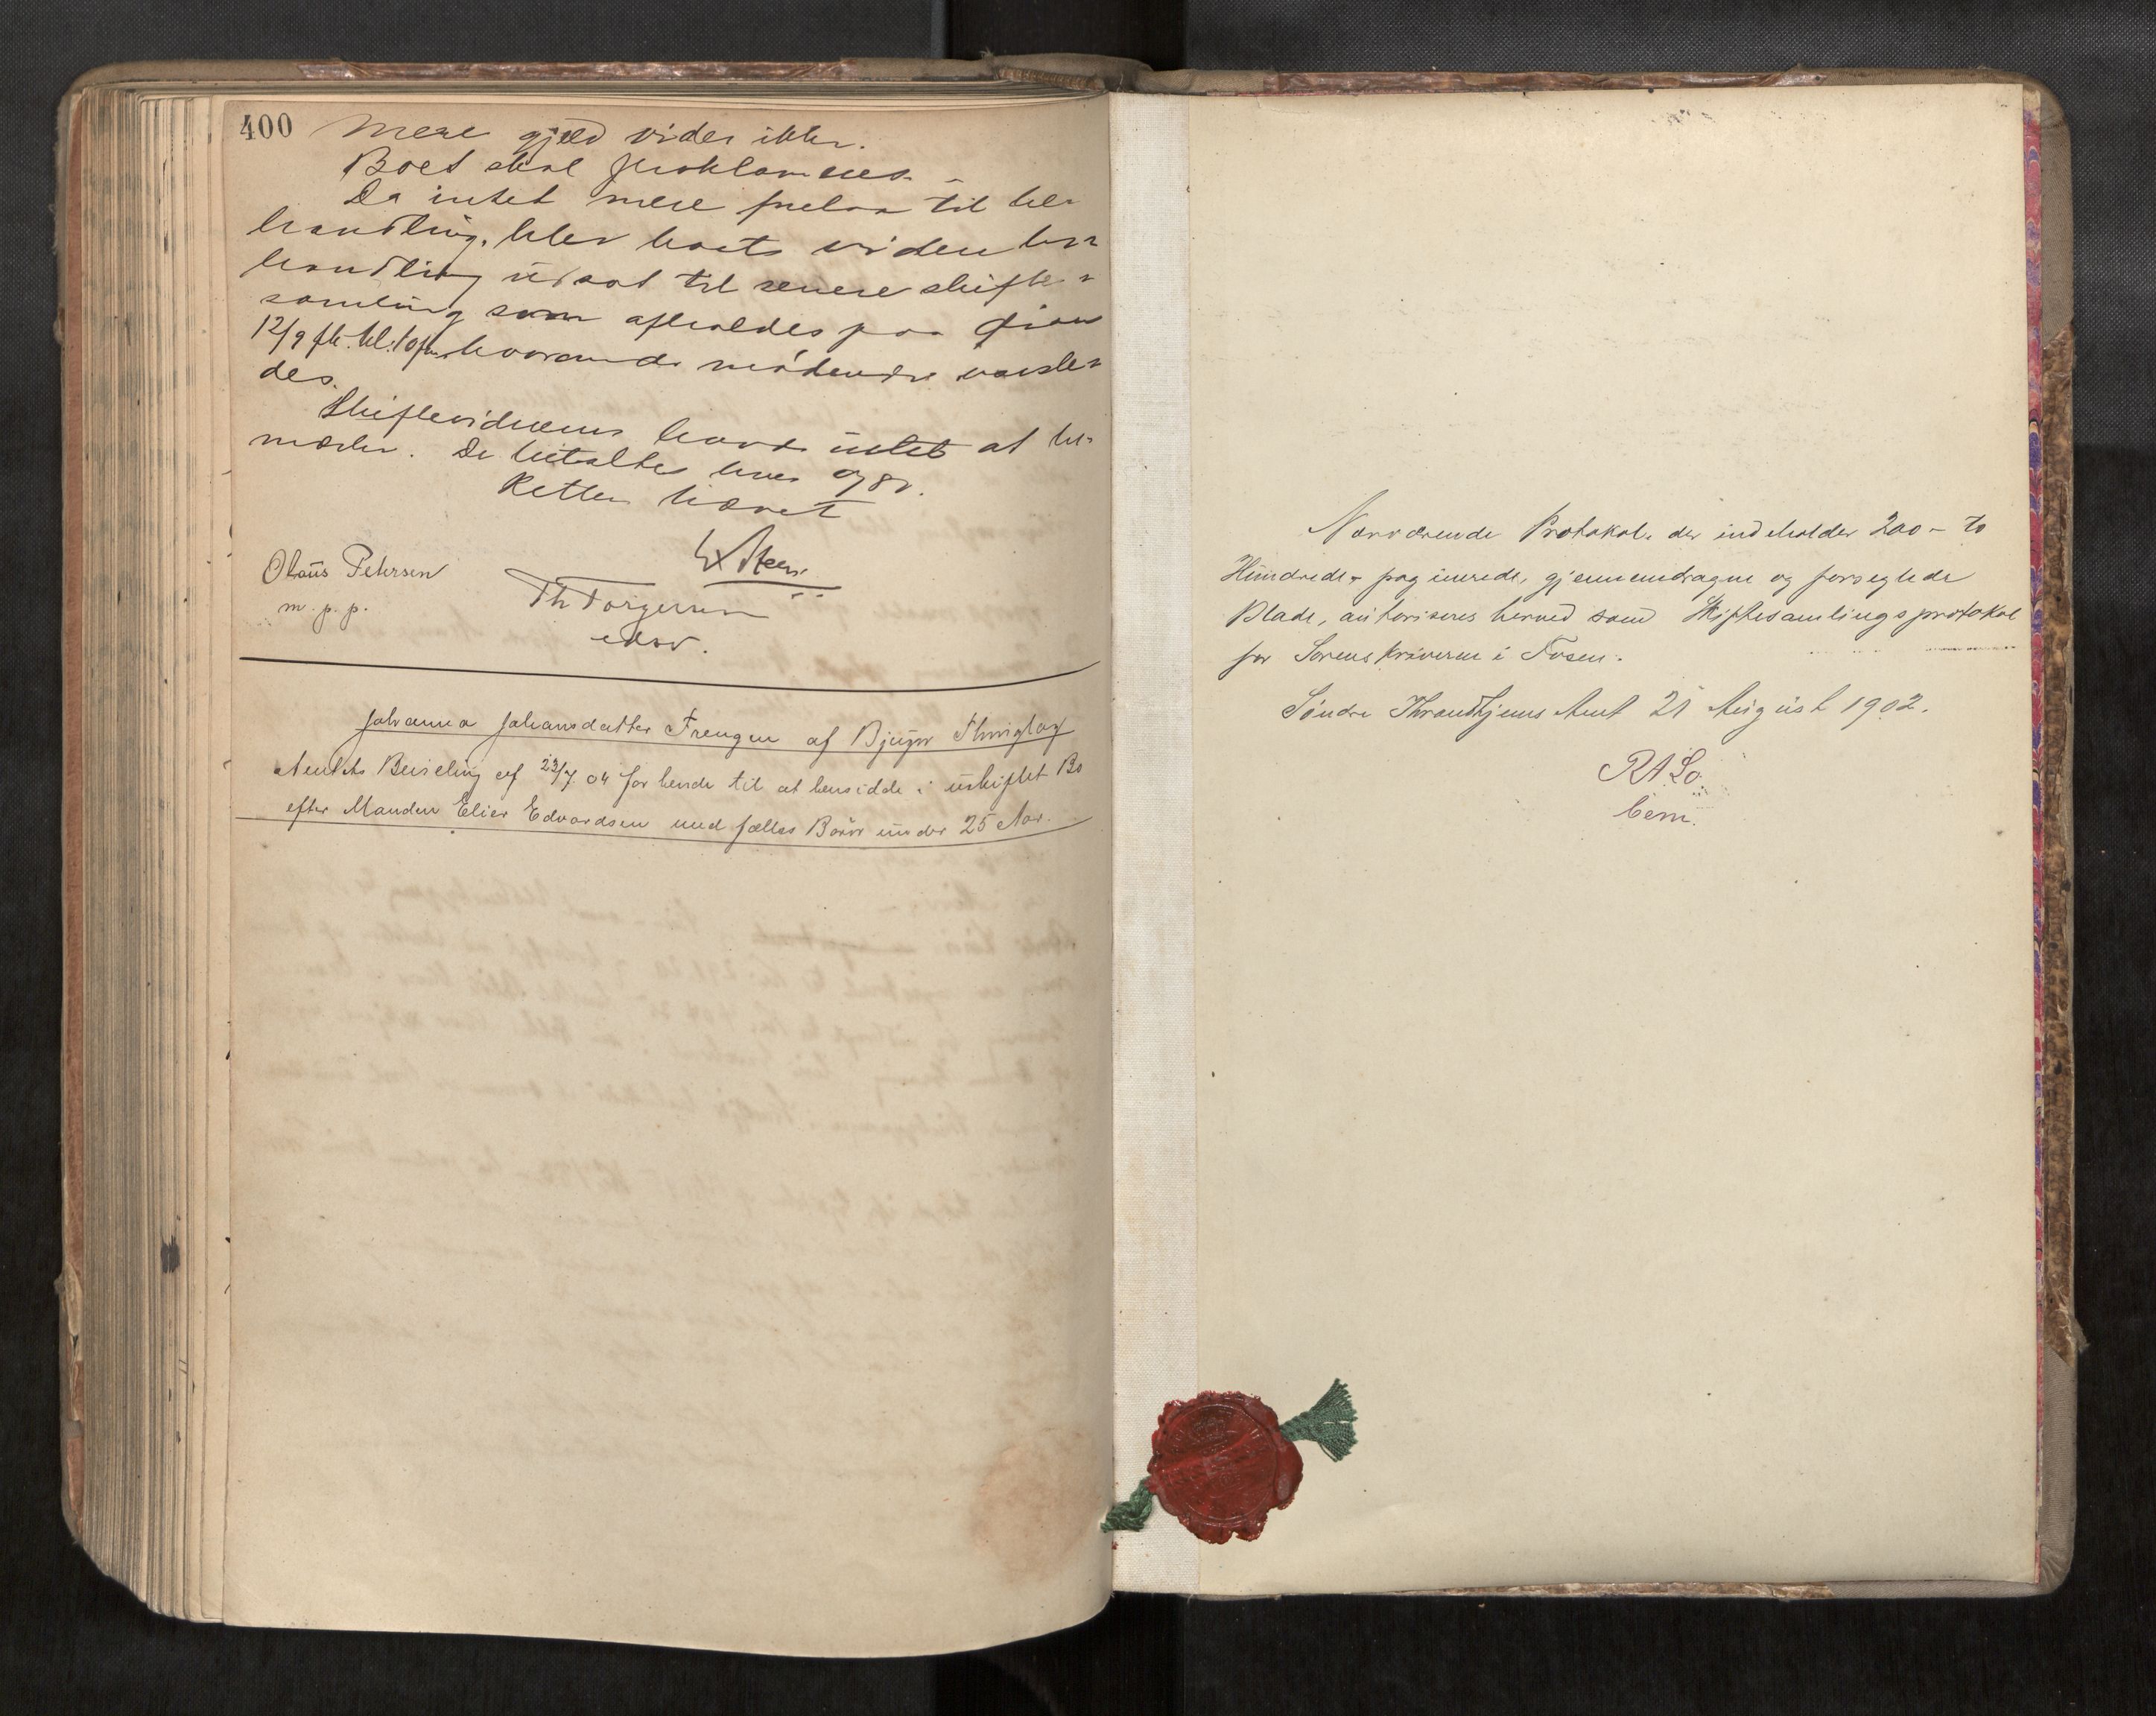 400
Mere gjæld vides ikke.
Boet skal proklameres.
Da intet mere forelaa til be-
handling, blev boets viden be-
handling udsat til senere skifte-
samling som afholdes paa
12/9 fk. kl. 10 fm. hvorom de mødende varsle-
des.
Skiftevidnerne havde intet at be-
mærke. De betaltes hver
Retten hævet
W Steen
Olaus Petersen
m. p. p.
Th Torgersen
edsv.
Johanna Johansdatter Frengen af Bjugn Thinglag
Amtets Bevilling af 23/7 04 for hende til at hensidde i uskiftet Bo
efter Manden Elier Edvardsen med fælles Børn under 25 Aar.
Nærværende Protokol, der indeholder 200 - to
Hundrede - paginerede, gjennemdragne og forseglede
Blade, autoriseres herved som Skiftesamlingsprotokol
for Sorenskriveren i Fosen.
Søndre Throndhjems Amt 21 August 1902.